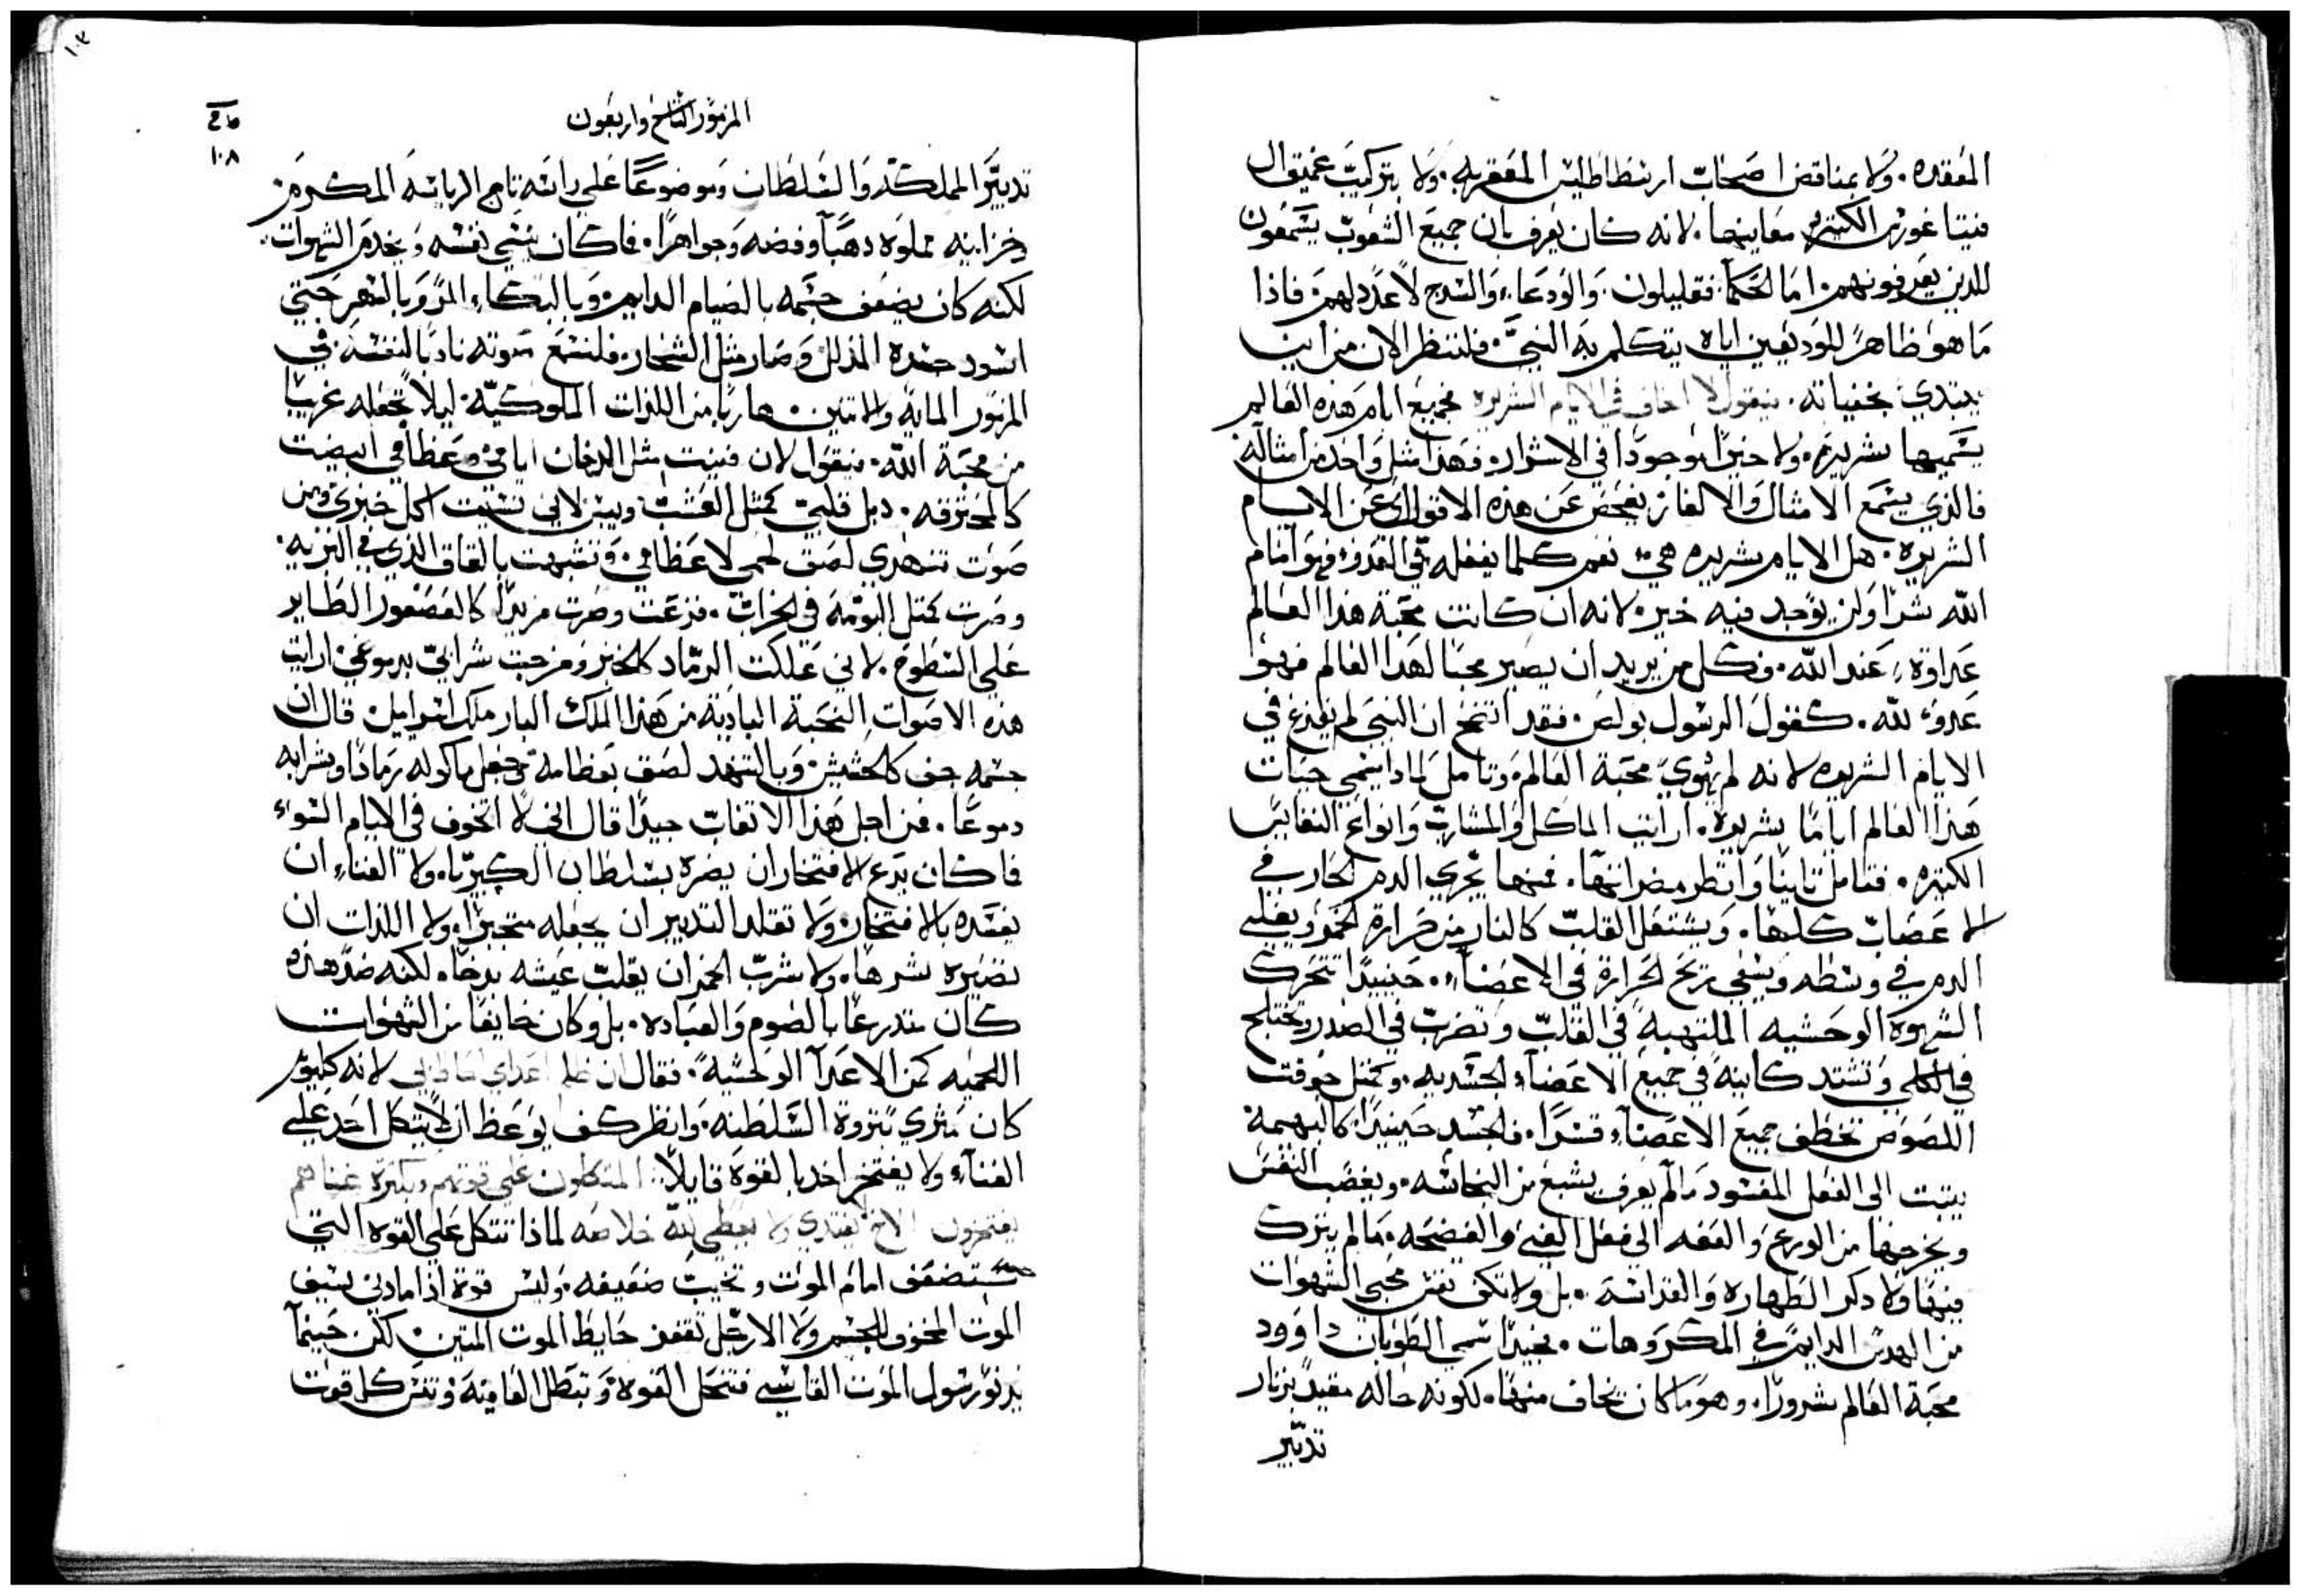 المعقده. ولا بمناقض اصحاب ارسطاطاليس المعقربه. ولا بتركيب عميق ال
فيتاغورس الكثيره معانيها. لانه كان يعرف بان جميع الشعوب يسمعون
للذين يعرفونهم. اما الحكما فقليلون. والودعاء والسدج لا عدد لهم. فاذا
ما هو ظاهرً للوديعين اياه يتكلم به النبي. فلننظر الان من اين
يبتدي بخفياته. فيقول لا اخاف في الايام الشريره فجميع ايام هذه العالم
يسميها شريره. ولا خيرًا موجودًا في الاشرار. فهذا مثل واحد من امثاله
فالذي يسمع الامثال والالغاز يفحص عن هذه الاقوال عن الايام
الشريره. هل الايام شريره هي. نعم كلما يفعله في العدو. فهو امام
الله شرًا ولن يوجد فيه خير. لانه ان كانت محبة هذا العالم
عداوة عند الله. فكل من يريد ان يصير محبًا لهذا العالم فهو
عدو لله. كقول الرسول بولس. فقد اتضح ان النبي لم يفزع في
الايام الشريره لانه لم يهوي محبة العالم. وتامل لماذا يسمي حيات
هذا العالم ايامًا شريره. ارايت الماكل والمشارب وانواع النفايس
الكثيره. فتامل تانيًا وانظر مضراتها. فمنها يجري الدم الحار في
الاعصاب كلها. ويشتعل القلب كالنار من حرارة الخمر ويغلي
الدم في وسطه ويسعي ريح الحرارة في الاعضاء. حينيدًا تتحرك
الشهوة الوحشيه الملتهبة في القلب وتضرب في الصدر وتختلج
في الكلي وتشتد كاينة في جميع الاعضاء الجسديه. وكمثل جوقت
اللصوص تخطف جميع الاعضاء قسرًا. فالجسد حينيدًا كالبهيمة
يثبت الى الفعل المفسود مالم يعرف يشبع من النجاسه. ويغصب النفس
ويخرجها من الورع والعفه الي فعل الغي والفضيحه. مالم يترك
فيها ولا دكر الطهاره والقداسة. بل ولا تكف نفس محبي الشهوات
من الهدس الدايم في المكروهات. فحينيدًا سمي الطوبان داوود
محبة العالم شرورًا. وهو ما كان يخاف منها. لكونه حاله مقيدً بزنار
تدبير
المزمور التاسع واربعون
١٠٣
١٠٨
تدبير المملكة والسلطان وموضوعًا علي راسه تاج الرياسة المكرم
وخزاينه مملوه دهبًا وفضه وجواهرًا. فاكان ينسي نفسه ويخدم الشهوات.
لكنه كان يضعف جسمه بالصيام الدايم وبالبكاء المر وبالسهر حتي
اسود جسده المذلل وصار مثل الشحار. فلنسمع صوته نادبًا لنفسه في
المزمور الماية والاتنين. هاربًا من اللذات الملوكيّة. ليلا تجعله غريبًا
من محبة الله. فيقول لان فنيت مثل الدخان ايامي وعظامي ابيضت
كالمحترقه. دبل قلبي كمثل العشب ويبس لاني نسيت اكل خبزي ومن
صوت تنهدي لصق لحمي لاعظامي. وتشبهت بالقاق الذي في البريه.
وصرت كمتل البومة في الخراب. فزعت وصرت فريدًا كالعصفور الطاير
علي السطوح. لاني عَلكت الرماد كالخبز ومزجت شرابي بدموعي. ارايت
هذه الاصوات النحبة البادية من هذا الملك البار ملك اسراييل. قال ان
جسمه جف كالحشيش وبالتنهد لصق بعظامه وجعل ماكوله رمادًا وشرابه
دموعًا. فمن اجل هذا الاتفات جيدًا قال اني لا اتخوف في الايام السوء
فاكان يدع الافتخار ان يضره بسلطان الكبريا. ولا الغناء ان
يفسده بالافتخار. ولا تقلد التدبير ان يجعله متجبرًا. ولا اللذات ان
تضيره بشرها. ولا شرب الخمر ان يقلب عيشه بدخًا. لكنه ضد هذه
كان متدرعًا بالصوم والعباده. بل وكان خايفًا من الشهوات
اللحميه كمن الاعدآ الوحشية. فقال ان ظلم اعداي احاط بي لانه كلؤر
كان مثري بثروة السلطنه. وانظر كيف يوعظ ان لا يتكل احد علي
الغناء ولا يفتخر احد بالقوة قايلا. المتكلون علي قوتهم وبكثرة غناهم
يفتخرون الاخ يفتدي ولا يعطي لله خلاصه لماذا تتكل علي القوه التي
ستضعف امام الموت وتخيب ضعيفه. وليس قوة اذا مادني سيف
الموت المخوف للجسم ولا الارجل تقفز حايط الموت المتين. لكن حينمآ
يدنو رسول الموت القاسي فتنحل القوه وتبطل العافيه وتفنى كل قوت